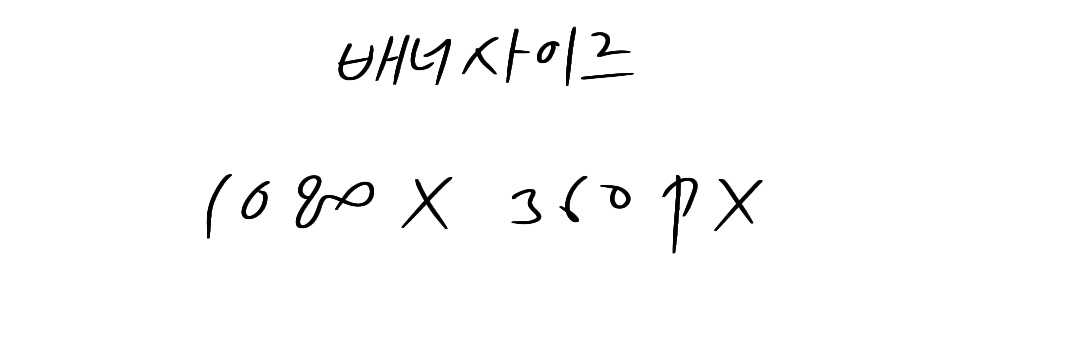 배너사이즈
1080 X 360 px